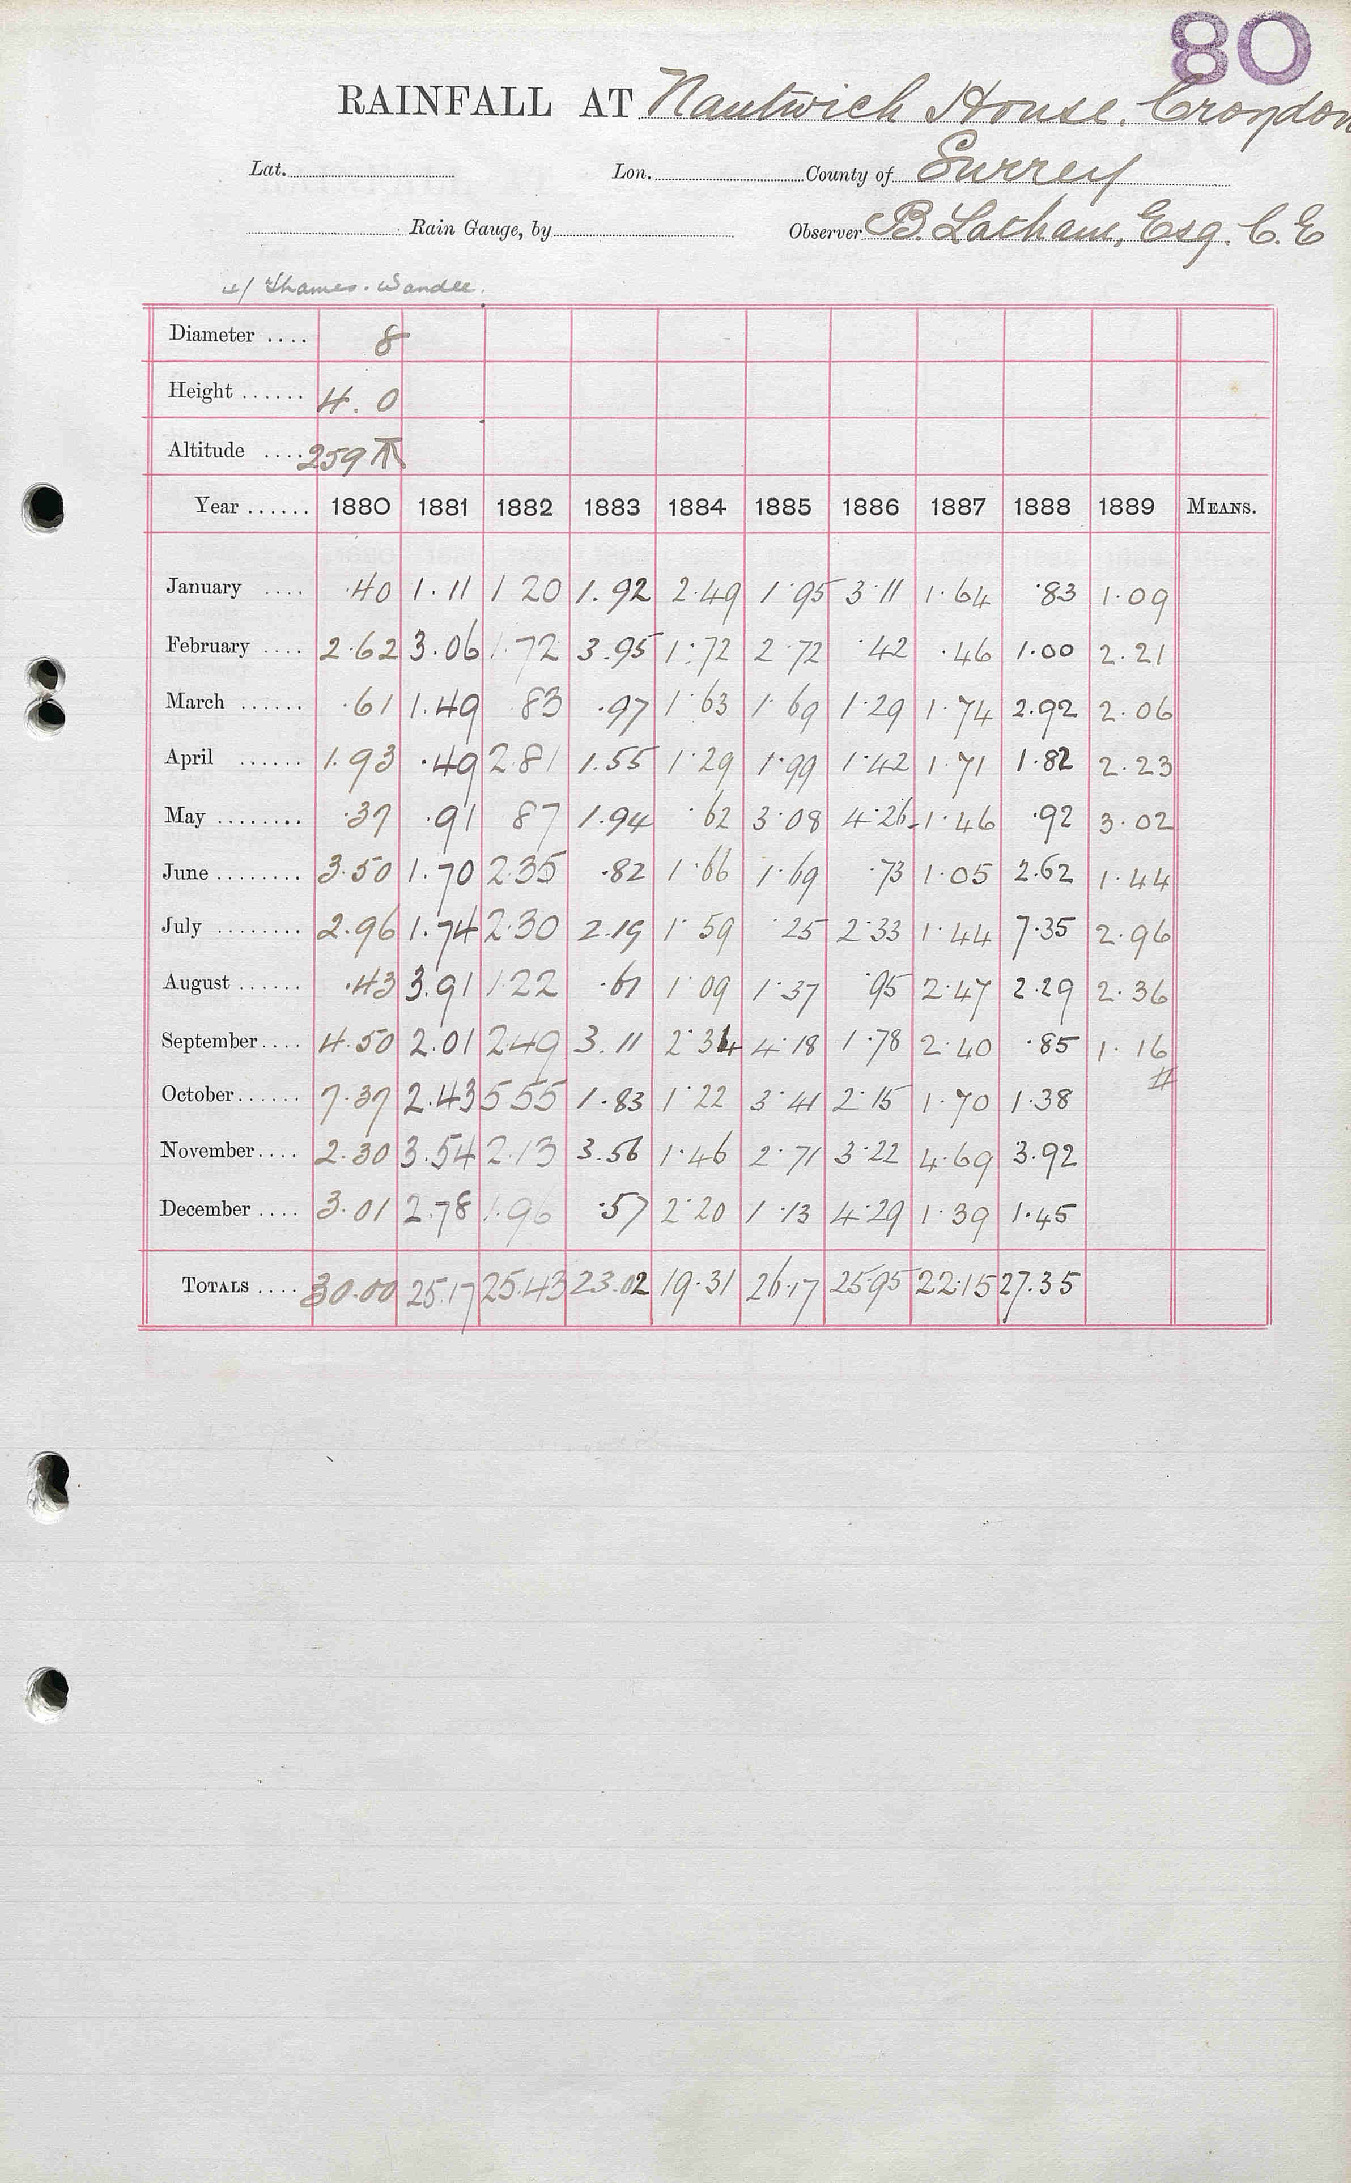 80
RAINFALL AT Nantwich House. Croydon
Lat. Lon. County of Surrey
Rain Gauge, by Observer B. Latham, Esq. C.E
w/ Thames. Wandle.
Diameter .... 8
Height ...... 4. 0
Altitude .... 259
Year ...... 1880 1881 1882 1883 1884 1885 1886 1887 1888 1889 MEANS.
January .... .40 1.11 1 20 1.92 2.49 1.95 3.11 1.64 .83 1.09
February .... 2.62 3.06 1.72 3.95 1.72 2.72 .42 .46 1.00 2.21
March ...... .61 1.49 83 .97 1.63 1.69 1.29 1.74 2.92 2.06
April ...... 1.93 .49 2.81 1.55 1.29 1.99 1.42 1.71 1.82 2.23
May ........ .37 .91 87 1.94 .62 3.08 4.26 1.46 .92 3.02
June ........ 3.50 1.70 2.35 .82 1.66 1.69 .73 1.05 2.62 1.44
July ........ 2.96 1.74 2.30 2.19 1.59 .25 2.33 1.44 7.35 2.96
August ...... .43 3.91 1.22 .61 1.09 1.37 .95 2.47 2.29 2.36
September .... 4.50 2.01 2.49 3.11 2.34 4.18 1.78 2.40 .85 1.16
#
October ...... 7.37 2.43 5.55 1.83 1.22 3.41 2.15 1.70 1.38
November .... 2.30 3.54 2.13 3.56 1.46 2.71 3.22 4.69 3.92
December .... 3.01 2.78 1.96 .57 2.20 1.13 4.29 1.39 1.45
TOTALS .... 30.00 25.17 25.43 23.02 19.31 26.17 25.95 22.15 27.35